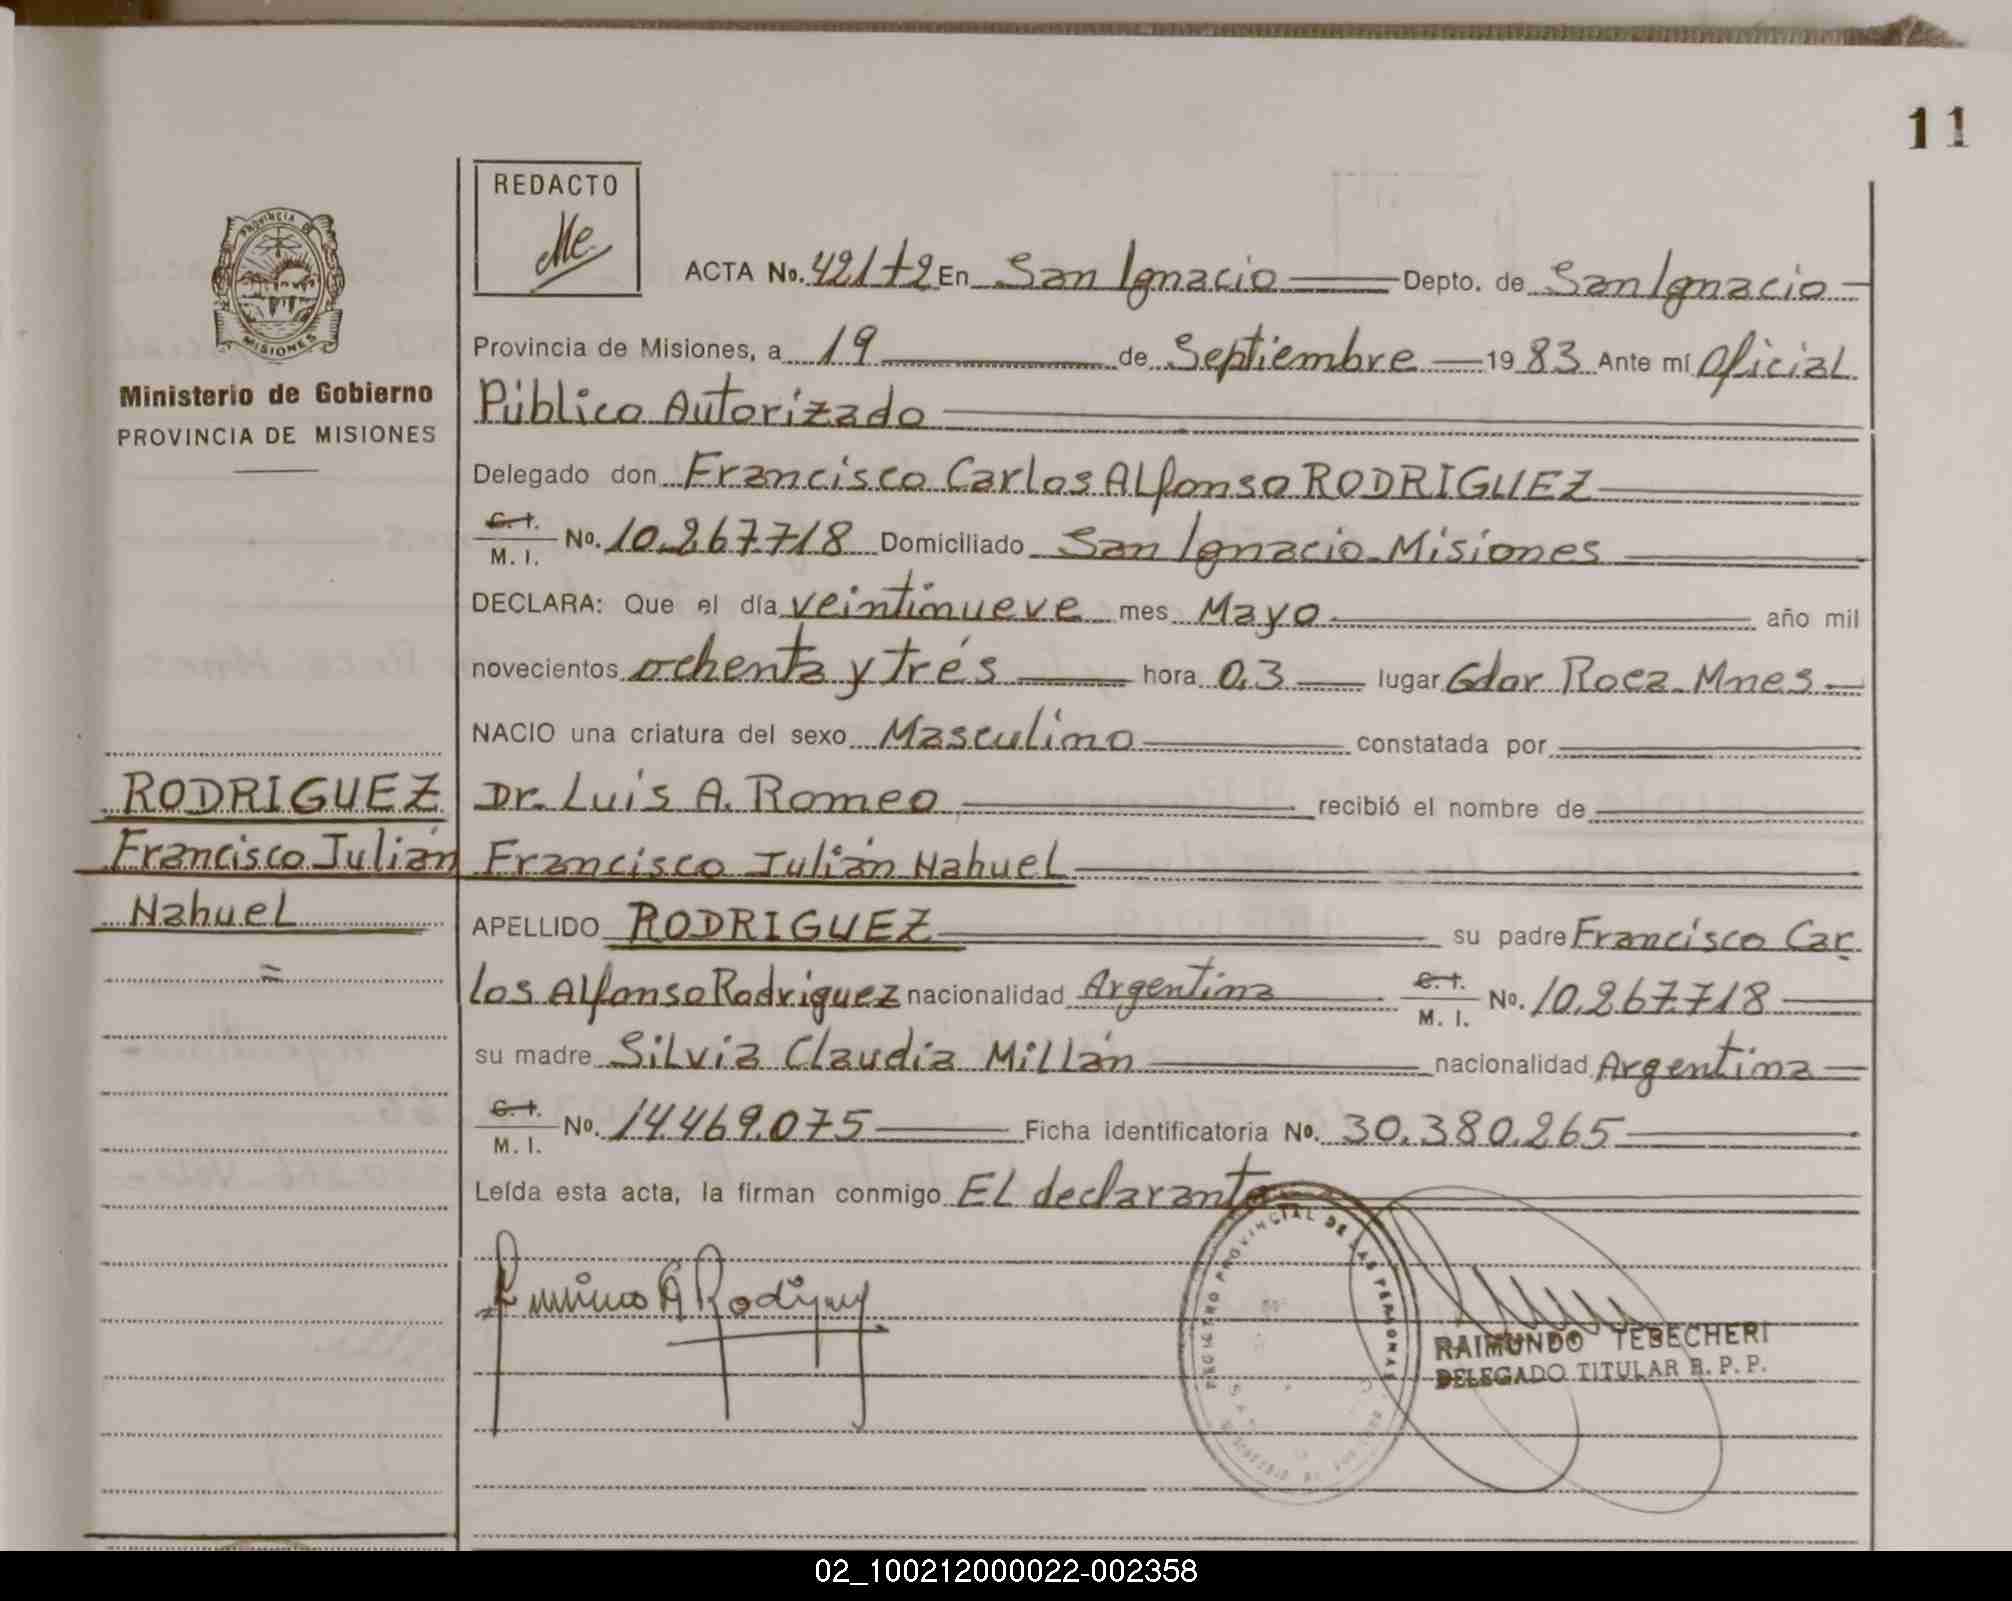 11
REDACTO
PROVINCIA DE
MISIONES
Ministerio de Gobierno
PROVINCIA DE MISIONES
ACTA No. 421 t2 En San Ignacio Depto. de San Ignacio
Provincia de Misiones, a 19 de Septiembre 19 83 Ante mí Oficial
Público Autorizado
Delegado don Francisco Carlos Alfonso RODRIGUEZ
C. I.
M. I. No. 10.267.718 Domiciliado San Ignacio Misiones
DECLARA: Que el día veintinueve mes Mayo año mil
novecientos ochenta y trés hora 0,3 lugar Gdor Roca Mnes
NACIO una criatura del sexo Masculino constatada por
RODRIGUEZ
Dr. Luis A. Romeo recibió el nombre de
Francisco Julián
Francisco Julián Nahuel
Nahuel
APELLIDO RODRIGUEZ su padre Francisco Car
=
los Alfonso Rodriguez nacionalidad Argentina C. I.
M. I. No. 10.267.718
su madre Silvia Claudia Millán nacionalidad Argentina
C. I.
M. I. No. 14.469.075 Ficha identificatoria No. 30.380.265
Leída esta acta, la firman conmigo El declarante
REGISTRO PROVINCIAL DE LAS PERSONAS
RAIMUNDO TEBECHERI
DELEGADO TITULAR R. P. P.
02_100212000022-002358